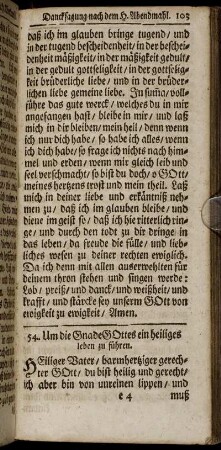 Dancksagung nach dem H. Abendmahl. 103
daß ich im glauben bringe tugend / und
in der tugend bescheidenheit / in der beschei-
denheit mäßigkeit / in der mäßigkeit gedult /
in der gedult gottseligkeit / in der gottselig-
keit brüderliche liebe / und in der brüder-
lichen liebe gemeine liebe. In summa / voll-
führe das gute werck / welches du in mir
angefangen hast / bleibe in mir / und laß
mich in dir bleiben / mein heil / denn wenn
ich nur dich habe / so habe ich alles / wenn
ich dich habe / so frage ich nichts nach him-
mel und erden / wenn mir gleich leib und
seel verschmacht / so bist du doch / o GOtt /
meines hertzens trost und mein theil. Laß
mich in deiner liebe und erkäntniß neh-
men zu / daß ich im glauben bleibe / und
diene im geist so / daß ich hie ritterlich rin-
ge / und durch den tod zu dir dringe in
das leben / da freude die fülle / und lieb-
liches wesen zu deiner rechten ewiglich.
Da ich denn mit allen auserwehlten für
deinem thron stehen und singen werde:
Lob / preiß / und danck / und weißheit / und
krafft / und stärcke sey unserm GOtt von
ewigkeit zu ewigkeit / Amen.
54. Um die Gnade GOttes ein heiliges
leben zu führen.
HEiliger Vater / barmhertziger gerech-
ter GOtt / du bist heilig und gerecht /
ich aber bin von unreinen lippen / und
e 4 muß